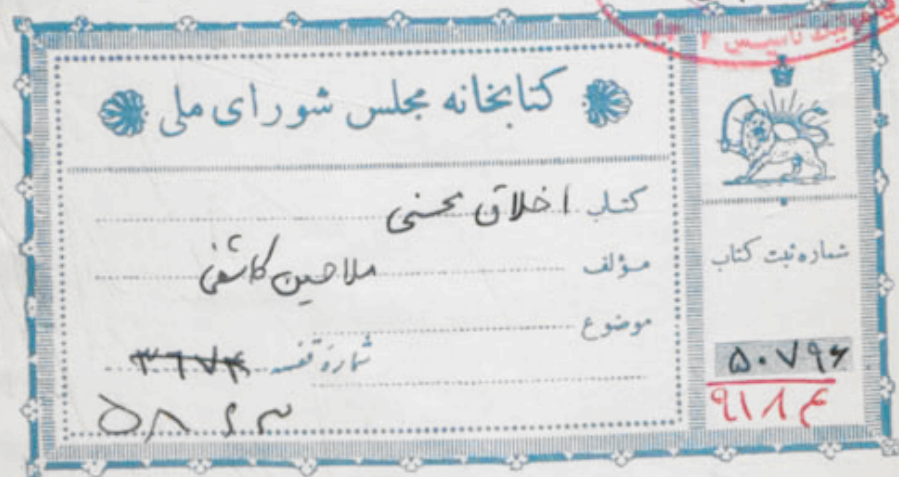 کتابخانه مجلس شورای ملی
کتاب اخلاق محسنی
مؤلف ملا حسین کاشفی
موضوع
شماره قفسه ۳۶۷۴
شماره ثبت کتاب
۵۰۷۹۶
۹۱۸۴
تأسیس